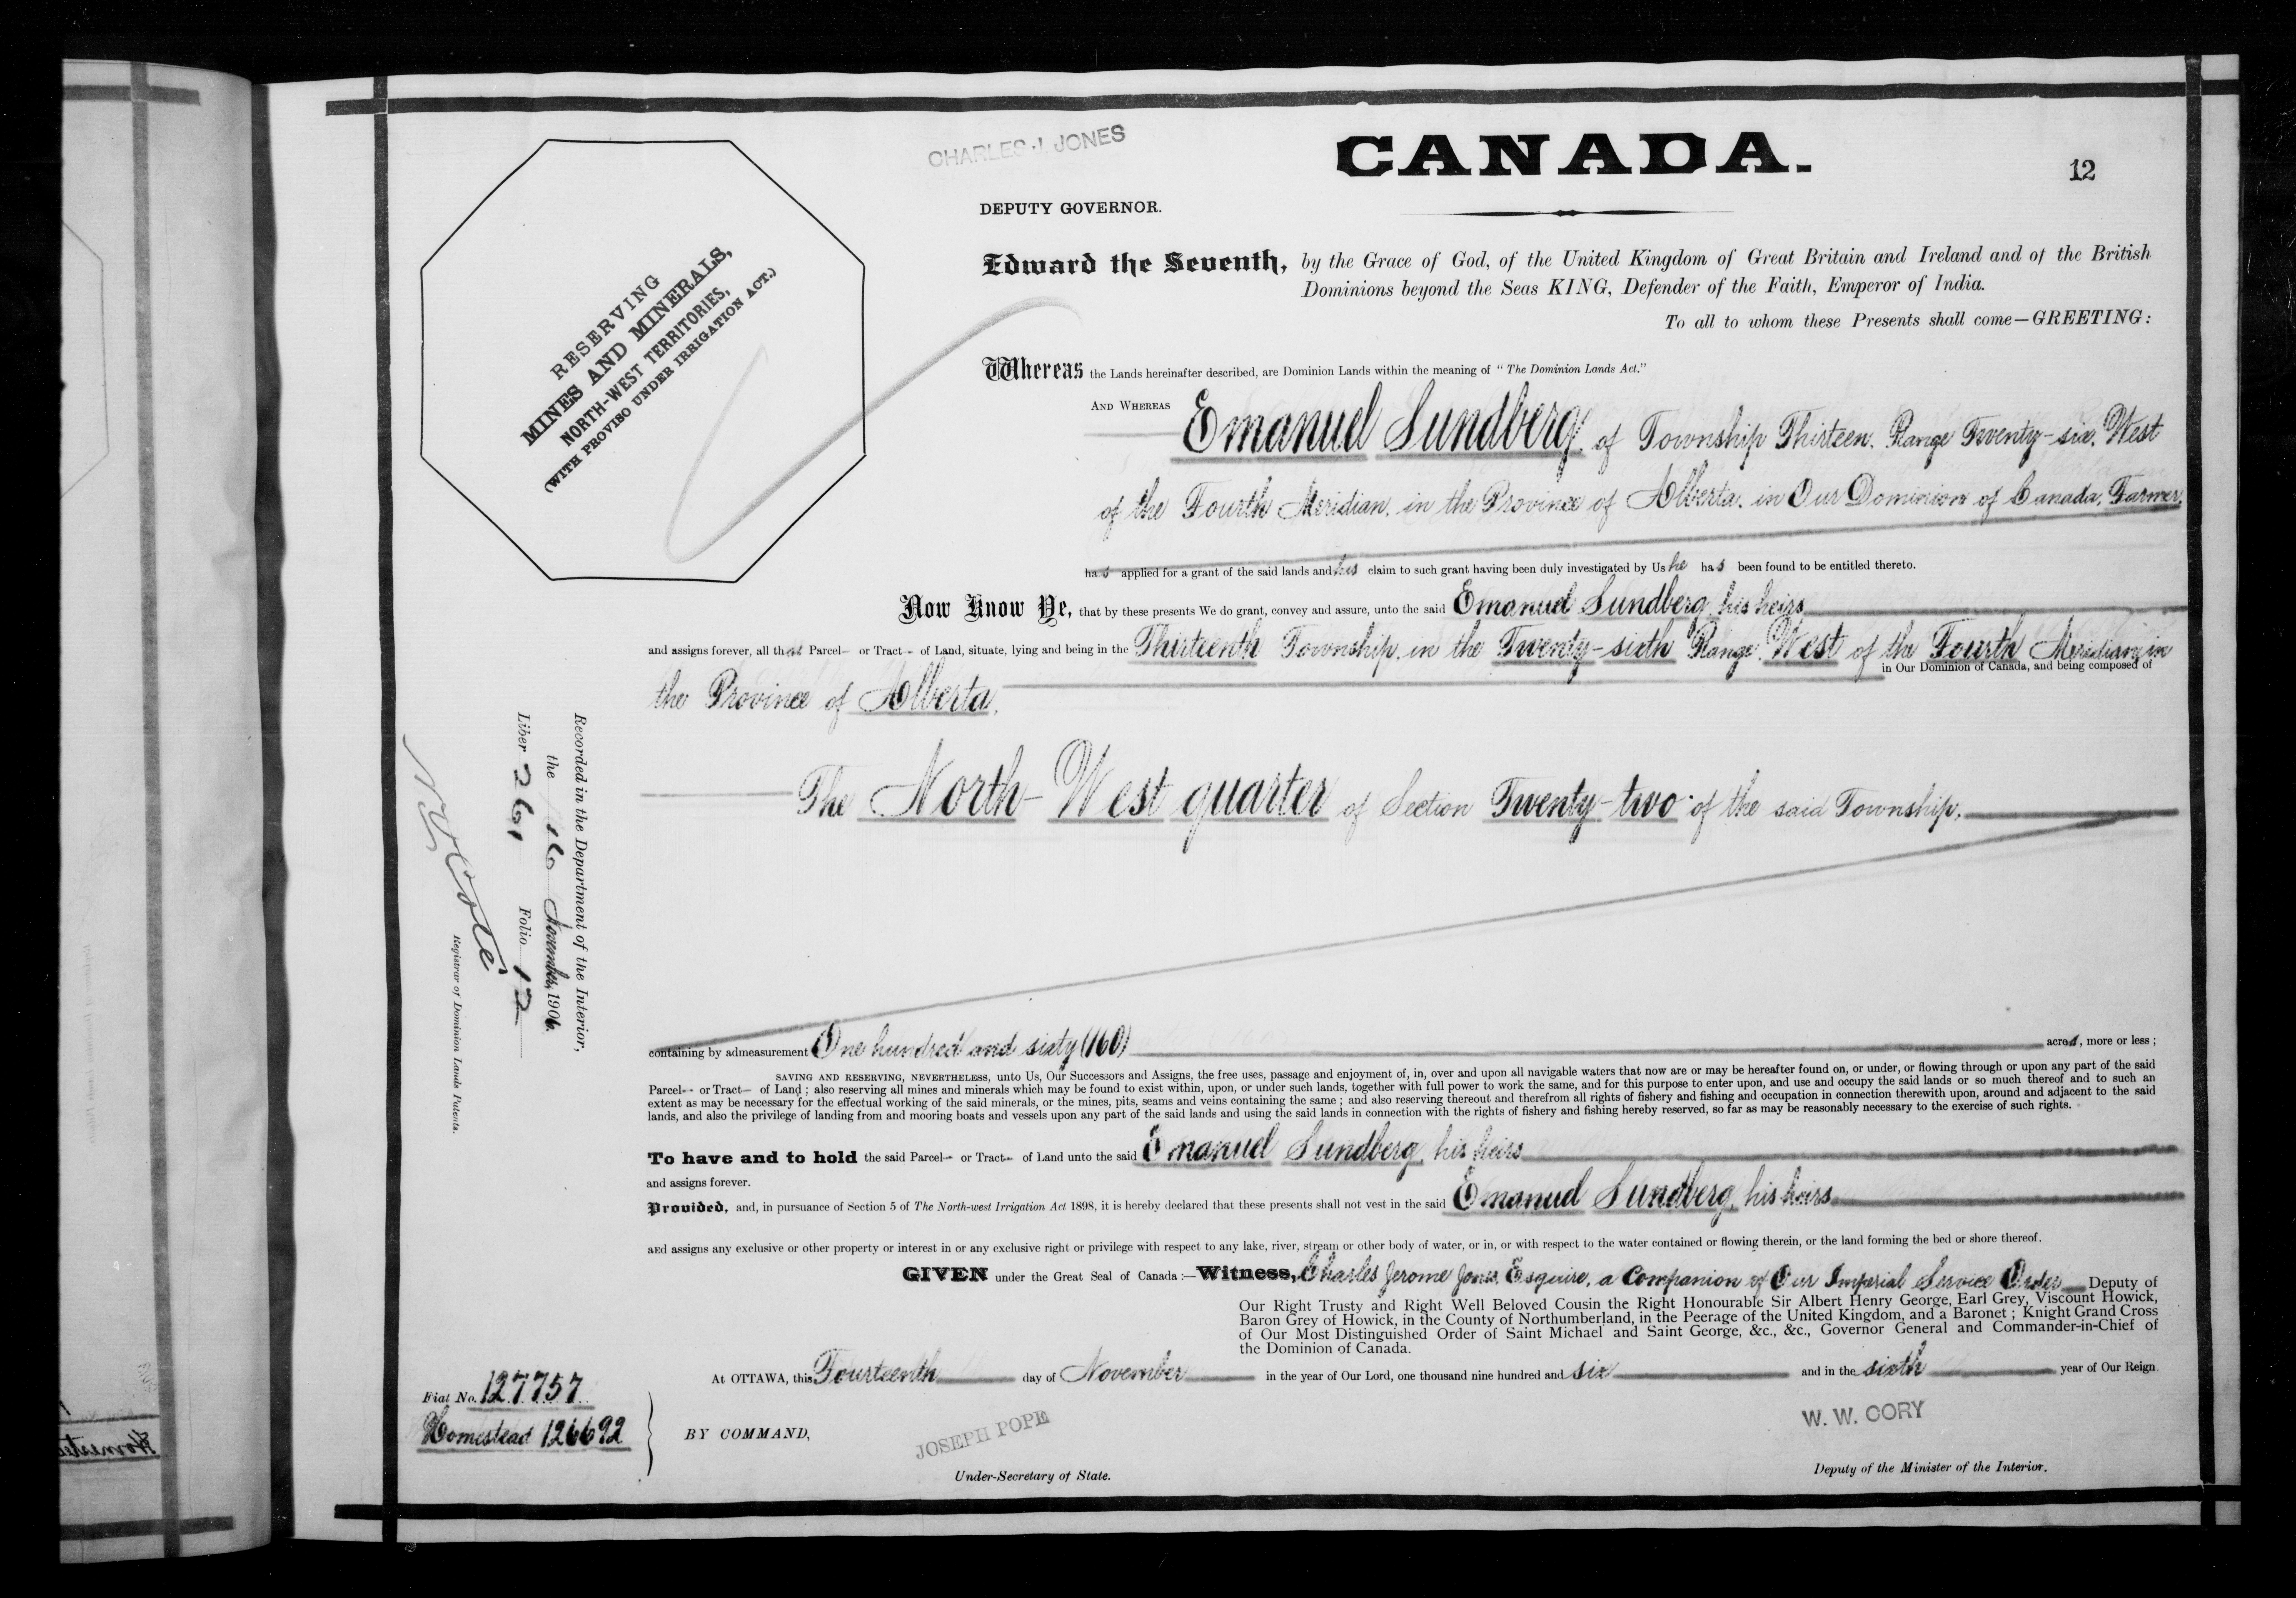 CHARLES J. JONES
CANADA.
12
DEPUTY GOVERNOR.
RESERVING
MINES AND MINERALS,
NORTH-WEST TERRITORIES,
(WITH PROVISO UNDER IRRIGATION ACT.)
Edward the Seventh, by the Grace of God, of the United Kingdom of Great Britain and Ireland and of the British
Dominions beyond the Seas KING, Defender of the Faith, Emperor of India.
To all to whom these Presents shall come—GREETING:
Whereas the Lands hereinafter described, are Dominion Lands within the meaning of "The Dominion Lands Act."
AND WHEREAS Emanuel Sundberg, of Township Thirteen, Range Twenty-six, West
of the Fourth Meridian, in the Province of Alberta, in Our Dominion of Canada, Farmer,
has applied for a grant of the said lands and his claim to such grant having been duly investigated by Us he has been found to be entitled thereto.
Now Know Ye, that by these presents We do grant, convey and assure, unto the said Emanuel Sundberg, his heirs
and assigns forever, all that Parcel or Tract of Land, situate, lying and being in the Thirteenth Township, in the Twenty-sixth Range, West of the Fourth Meridian, in
the Province of Alberta, in Our Dominion of Canada, and being composed of
The North-West quarter of Section Twenty-two of the said Township.
Recorded in the Department of the Interior,
the 16 November, 1906.
Liber 261 Folio 12
N O Coté
Registrar of Dominion Lands Patents.
containing by admeasurement One hundred and sixty (160) acres, more or less;
SAVING AND RESERVING, NEVERTHELESS, unto Us, Our Successors and Assigns, the free uses, passage and enjoyment of, in, over and upon all navigable waters that now are or may be hereafter found on, or under, or flowing through or upon any part of the said
Parcel or Tract of Land; also reserving all mines and minerals which may be found to exist within, upon, or under such lands, together with full power to work the same, and for this purpose to enter upon, and use and occupy the said lands or so much thereof and to such an
extent as may be necessary for the effectual working of the said minerals, or the mines, pits, seams and veins containing the same; and also reserving thereout and therefrom all rights of fishery and fishing and occupation in connection therewith upon, around and adjacent to the said
lands, and also the privilege of landing from and mooring boats and vessels upon any part of the said lands and using the said lands in connection with the rights of fishery and fishing hereby reserved, so far as may be reasonably necessary to the exercise of such rights.
To have and to hold the said Parcel or Tract of Land unto the said Emanuel Sundberg, his heirs
and assigns forever.
Provided, and, in pursuance of Section 5 of The North-west Irrigation Act 1898, it is hereby declared that these presents shall not vest in the said Emanuel Sundberg, his heirs
and assigns any exclusive or other property or interest in or any exclusive right or privilege with respect to any lake, river, stream or other body of water, or in, or with respect to the water contained or flowing therein, or the land forming the bed or shore thereof.
GIVEN under the Great Seal of Canada:—Witness, Charles Jerome Jones, Esquire, a Companion of Our Imperial Service Order Deputy of
Our Right Trusty and Right Well Beloved Cousin the Right Honourable Sir Albert Henry George, Earl Grey, Viscount Howick,
Baron Grey of Howick, in the County of Northumberland, in the Peerage of the United Kingdom, and a Baronet; Knight Grand Cross
of Our Most Distinguished Order of Saint Michael and Saint George, &c., &c., Governor General and Commander-in-Chief of
the Dominion of Canada.
At OTTAWA, this Fourteenth day of November in the year of Our Lord, one thousand nine hundred and six and in the sixth year of Our Reign
Fiat No. 127757
Homestead 126692
BY COMMAND,
JOSEPH POPE
Under-Secretary of State.
W. W. CORY
Deputy of the Minister of the Interior.